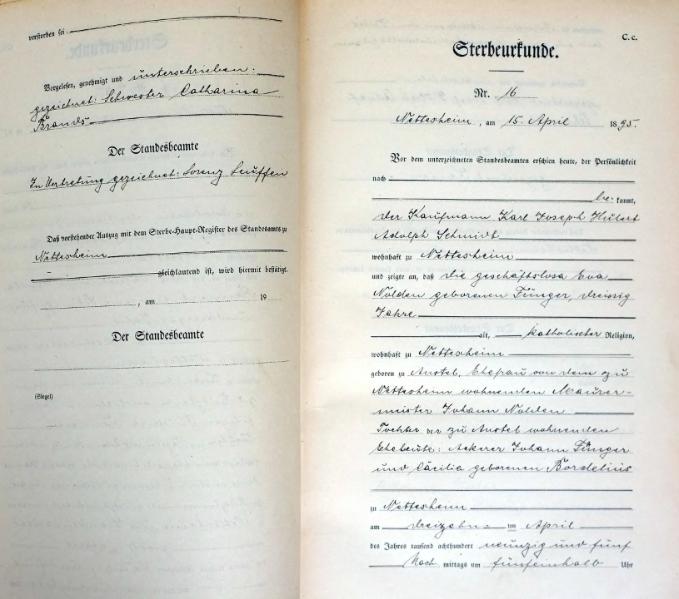 verstorben sei
Vorgelesen, genehmigt und unterschrieben:
gezeichnet: Schwester Catharina
Brands
Der Standesbeamte
In Vertretung gezeichnet: Lorenz
Das vorstehender Auszug mit dem Sterbe-Haupt-Register des Standesamts zu
Nettesheim
gleichlautend ist, wird hiermit bestätigt.
, am 19
Der Standesbeamte
(Siegel)
C. c.
Sterbeurkunde.
Nr. 16
Nettesheim, am 15. April 1895.
Vor dem unterzeichneten Standesbeamten erschien heute, der Persönlichkeit
nach
be kannt,
der Kaufmann Karl Joseph Hubert
Adolph Schmidt
wohnhaft zu Nettesheim
und zeigte an, daß die geschäftslose Eva
Nolden geborenen Jünger, dreissig
Jahre
alt, katholischer Religion,
wohnhaft zu Nettesheim
geboren zu Anstel, Ehefrau von dem zu
Nettesheim wohnenden Maurer-
meister Johann Nolden
Tochter der zu Anstel wohnenden
Eheleute: Ackerer Johann Jünger
und Cäcilia geborenen Bordelius
zu Nettesheim
am dreizehn April
des Jahres tausend achthundert neunzig und fünf
Nach mittags um fünfeinhalb Uhr